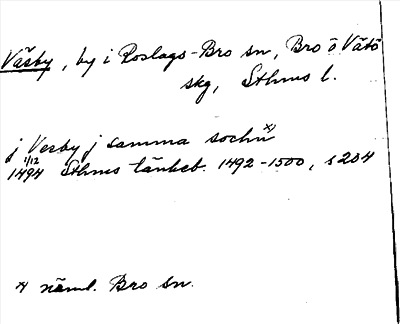 Väsby, by i Roslags-Bro sn, Bro o Vätö
skg, Sthms l.
j Vesby j samma sochn x)
1/12
1494 Sthms tänkeb. 1492-1500, s 204
x) näml. Bro sn.